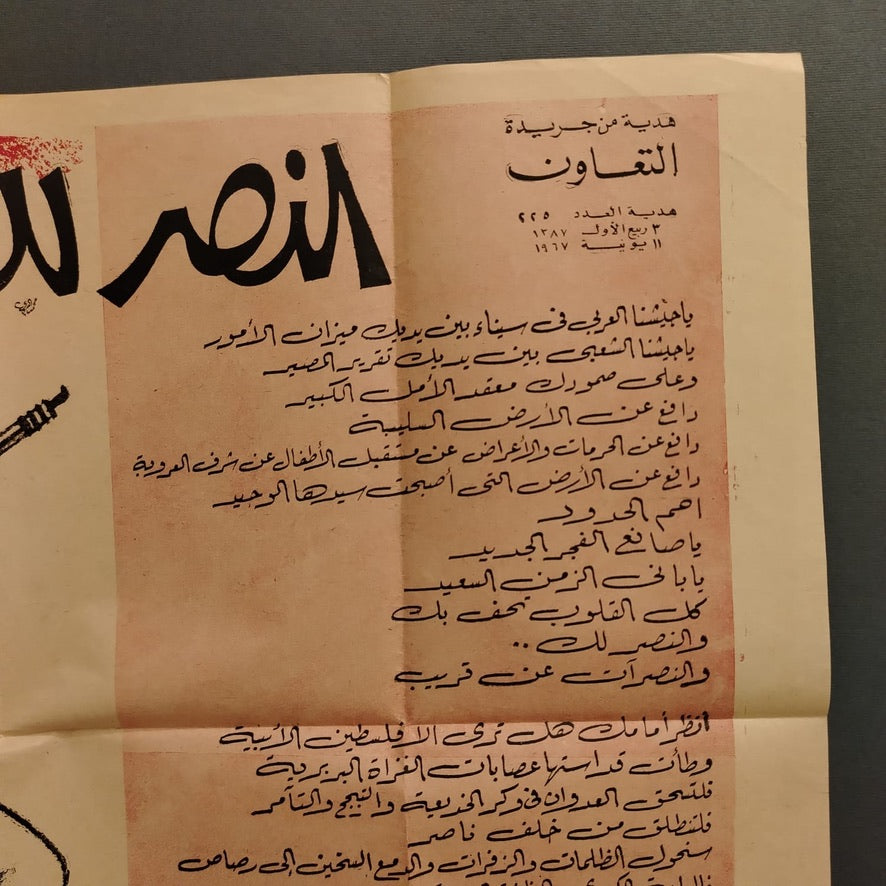 هدية من جريدة
التعاون
هدية العدد ٢٢٥
٣ ربيع الأول ١٣٨٧
١١ يونية ١٩٦٧
النصر لك
ياجيشنا العربى فى سيناء بين يديك ميزان الأمور
ياجيشنا الشعبى بين يديك تقرير المصير
وعلى صمودك معقد الأمل الكبير
دافع عن الأرض السليبة
دافع عن الحرمات والأعراض عن مستقبل الأطفال عن شرف العروبة
دافع عن الأرض التى أصبحت سيدها الوحيد
احم الحدود
ياصانع الفجر الجديد
يابانى الزمن السعيد
كل القلوب تحف بك
والنصر لك ..
والنصر آت عن قريب
انظر أمامك هل ترى الا فلسطين الأبية
وطأت قداستها عصابات الغزاة البربرية
فلتسحق العدوان فى وكر الخديعة والتبجح والتآمر
فلتنطلق من خلف ناصر
سنحول الظلمات والزفرات والدمع السخين إلى رصاص